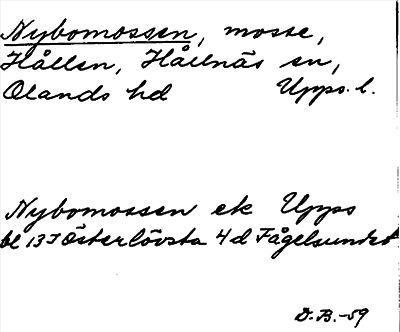 Nybomossen, mosse,
Hållen, Hållnäs sn,
Olands hd Upps. l.
Nybomossen ek Upps
bl 13I Österlövsta 4d Fågelsundet
D.B.-59